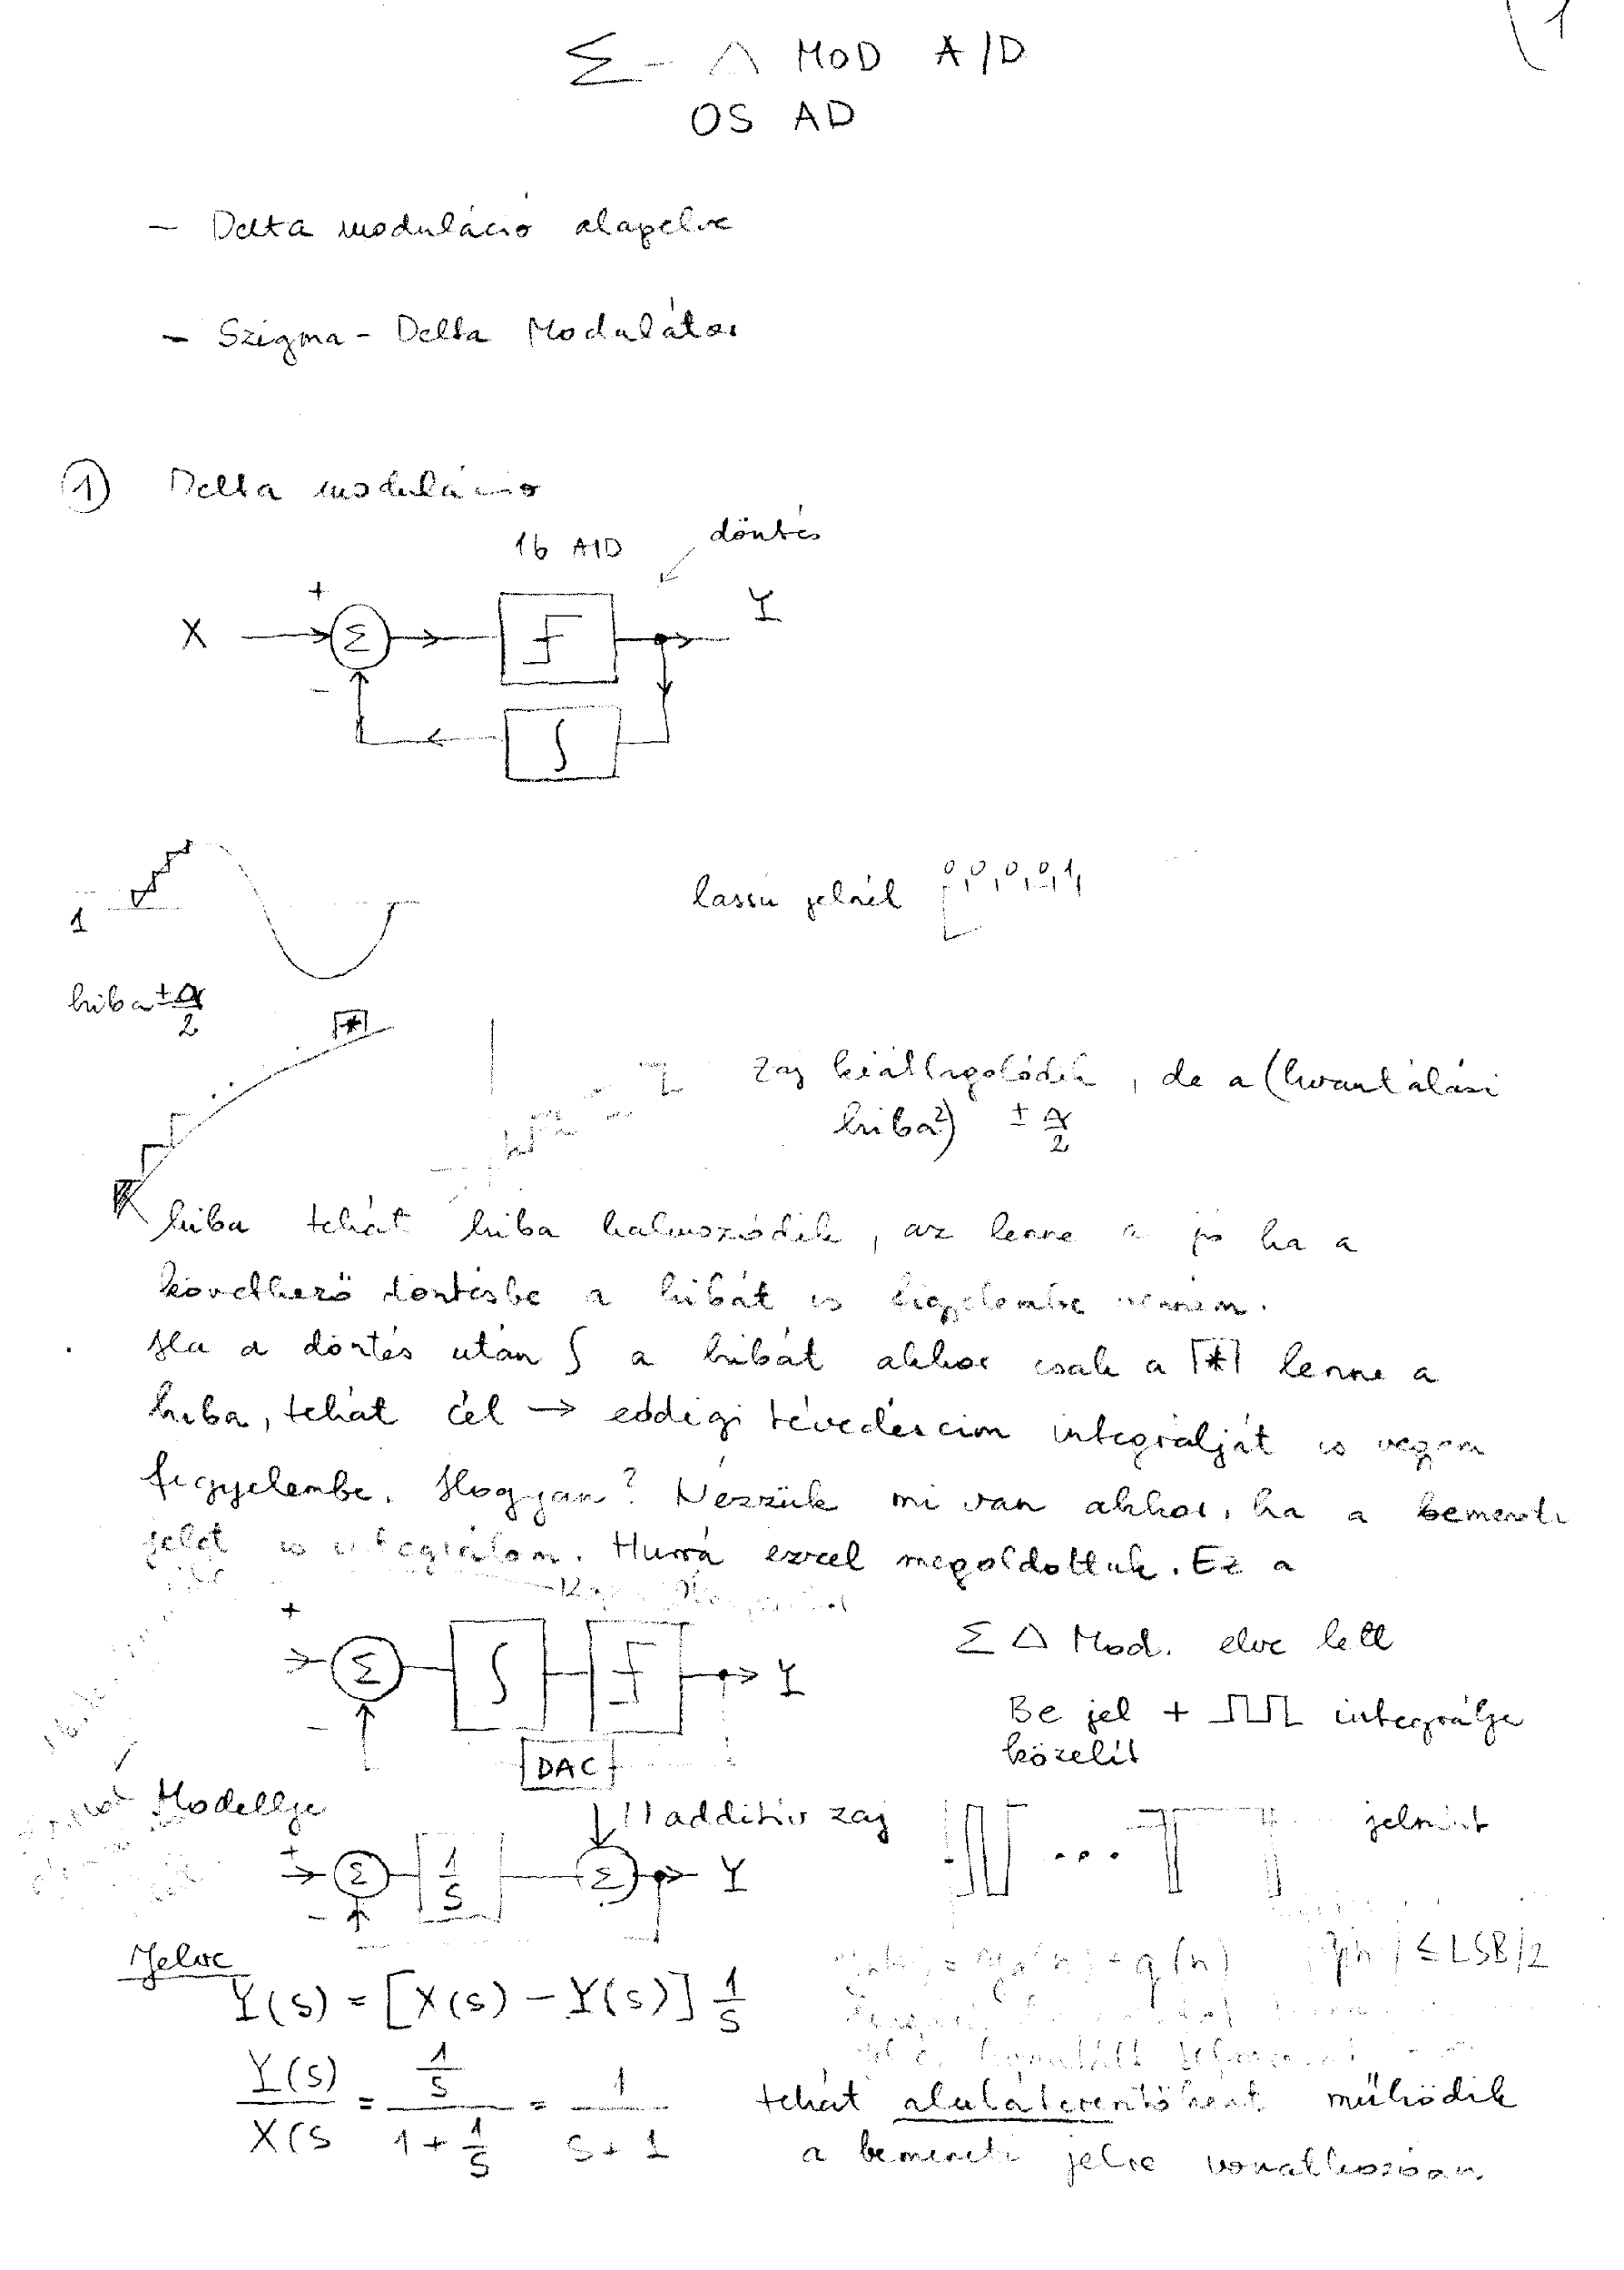 1
Σ - Δ MOD A/D
OS AD
- Delta moduláció alapelve
- Szigma - Delta Modulátor
① Delta moduláció
1b A/D döntés
+
X Σ Y
-
∫
1
lassú jelnél 0 0 0 0 1
hiba ± α/2
[*]
Zaj kiátlagolódik, de a (kvantálási
hiba?) ± α/2
hiba tehát hiba halmozódik, az lenne a jó ha a
következő döntésbe a hibát is figyelembe venném.
Ha a döntés után ∫ a hibát akkor csak a [*] lenne a
hiba, tehát cél → eddigi tévedéseim integrálját is vegyem
figyelembe. Hogyan? Nézzük mi van akkor, ha a bemeneti
jelet is integrálom. Hurrá ezzel megoldottuk. Ez a
+
Σ ∫ Y
-
DAC
Σ Δ Mod. elve lett
Be jel + integrálja
közelít
Modellje
additív zaj
+
Σ 1/s Σ Y
-
Jelre
q(n) | ≤ LSB/2
Y(s) = [X(s) - Y(s)] 1/s
Y(s)/X(s = (1/s)/(1 + 1/s) = 1/(s + 1)
tehát aluláteresztőként működik
a bemeneti jelre vonatkozóan